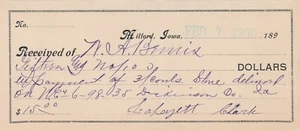 No.
Milford, Iowa, FEB 7 189
Received of W. A. Bemis
Fifteen & No/100 DOLLARS
in payment of 3/ Stone delived
on 6-98-35 Dickinson Co. Ia
$15.00 Lafayett Clark